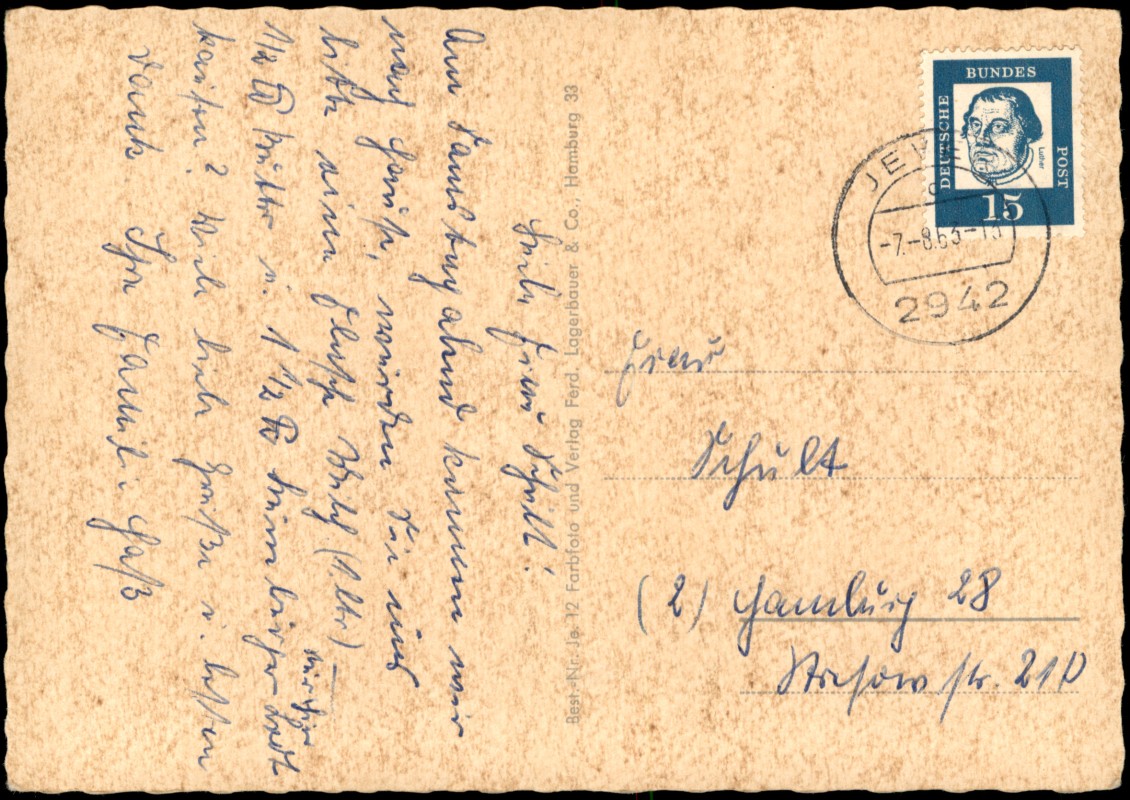 Liebe Frau Schult!
Am Samstag abend kommen wir
nach Hause, würden Sie uns
bitte eine Flasche Milch (1 Ltr) –
1/2 ℔ Butter u. 1 1/2 ℔ Hamburger
kaufen? Viele liebe Grüße u. besten
Dank. Ihre Familie Haß
Best.-Nr. Je. 112 Farbfoto und Verlag Ferd. Lagerbauer & Co., Hamburg 33
DEUTSCHE
BUNDES
POST
Luther
15
JEVER
-7.-8.63-
2942
Frau
Schult
(2) Hamburg 28
Stresowstr.